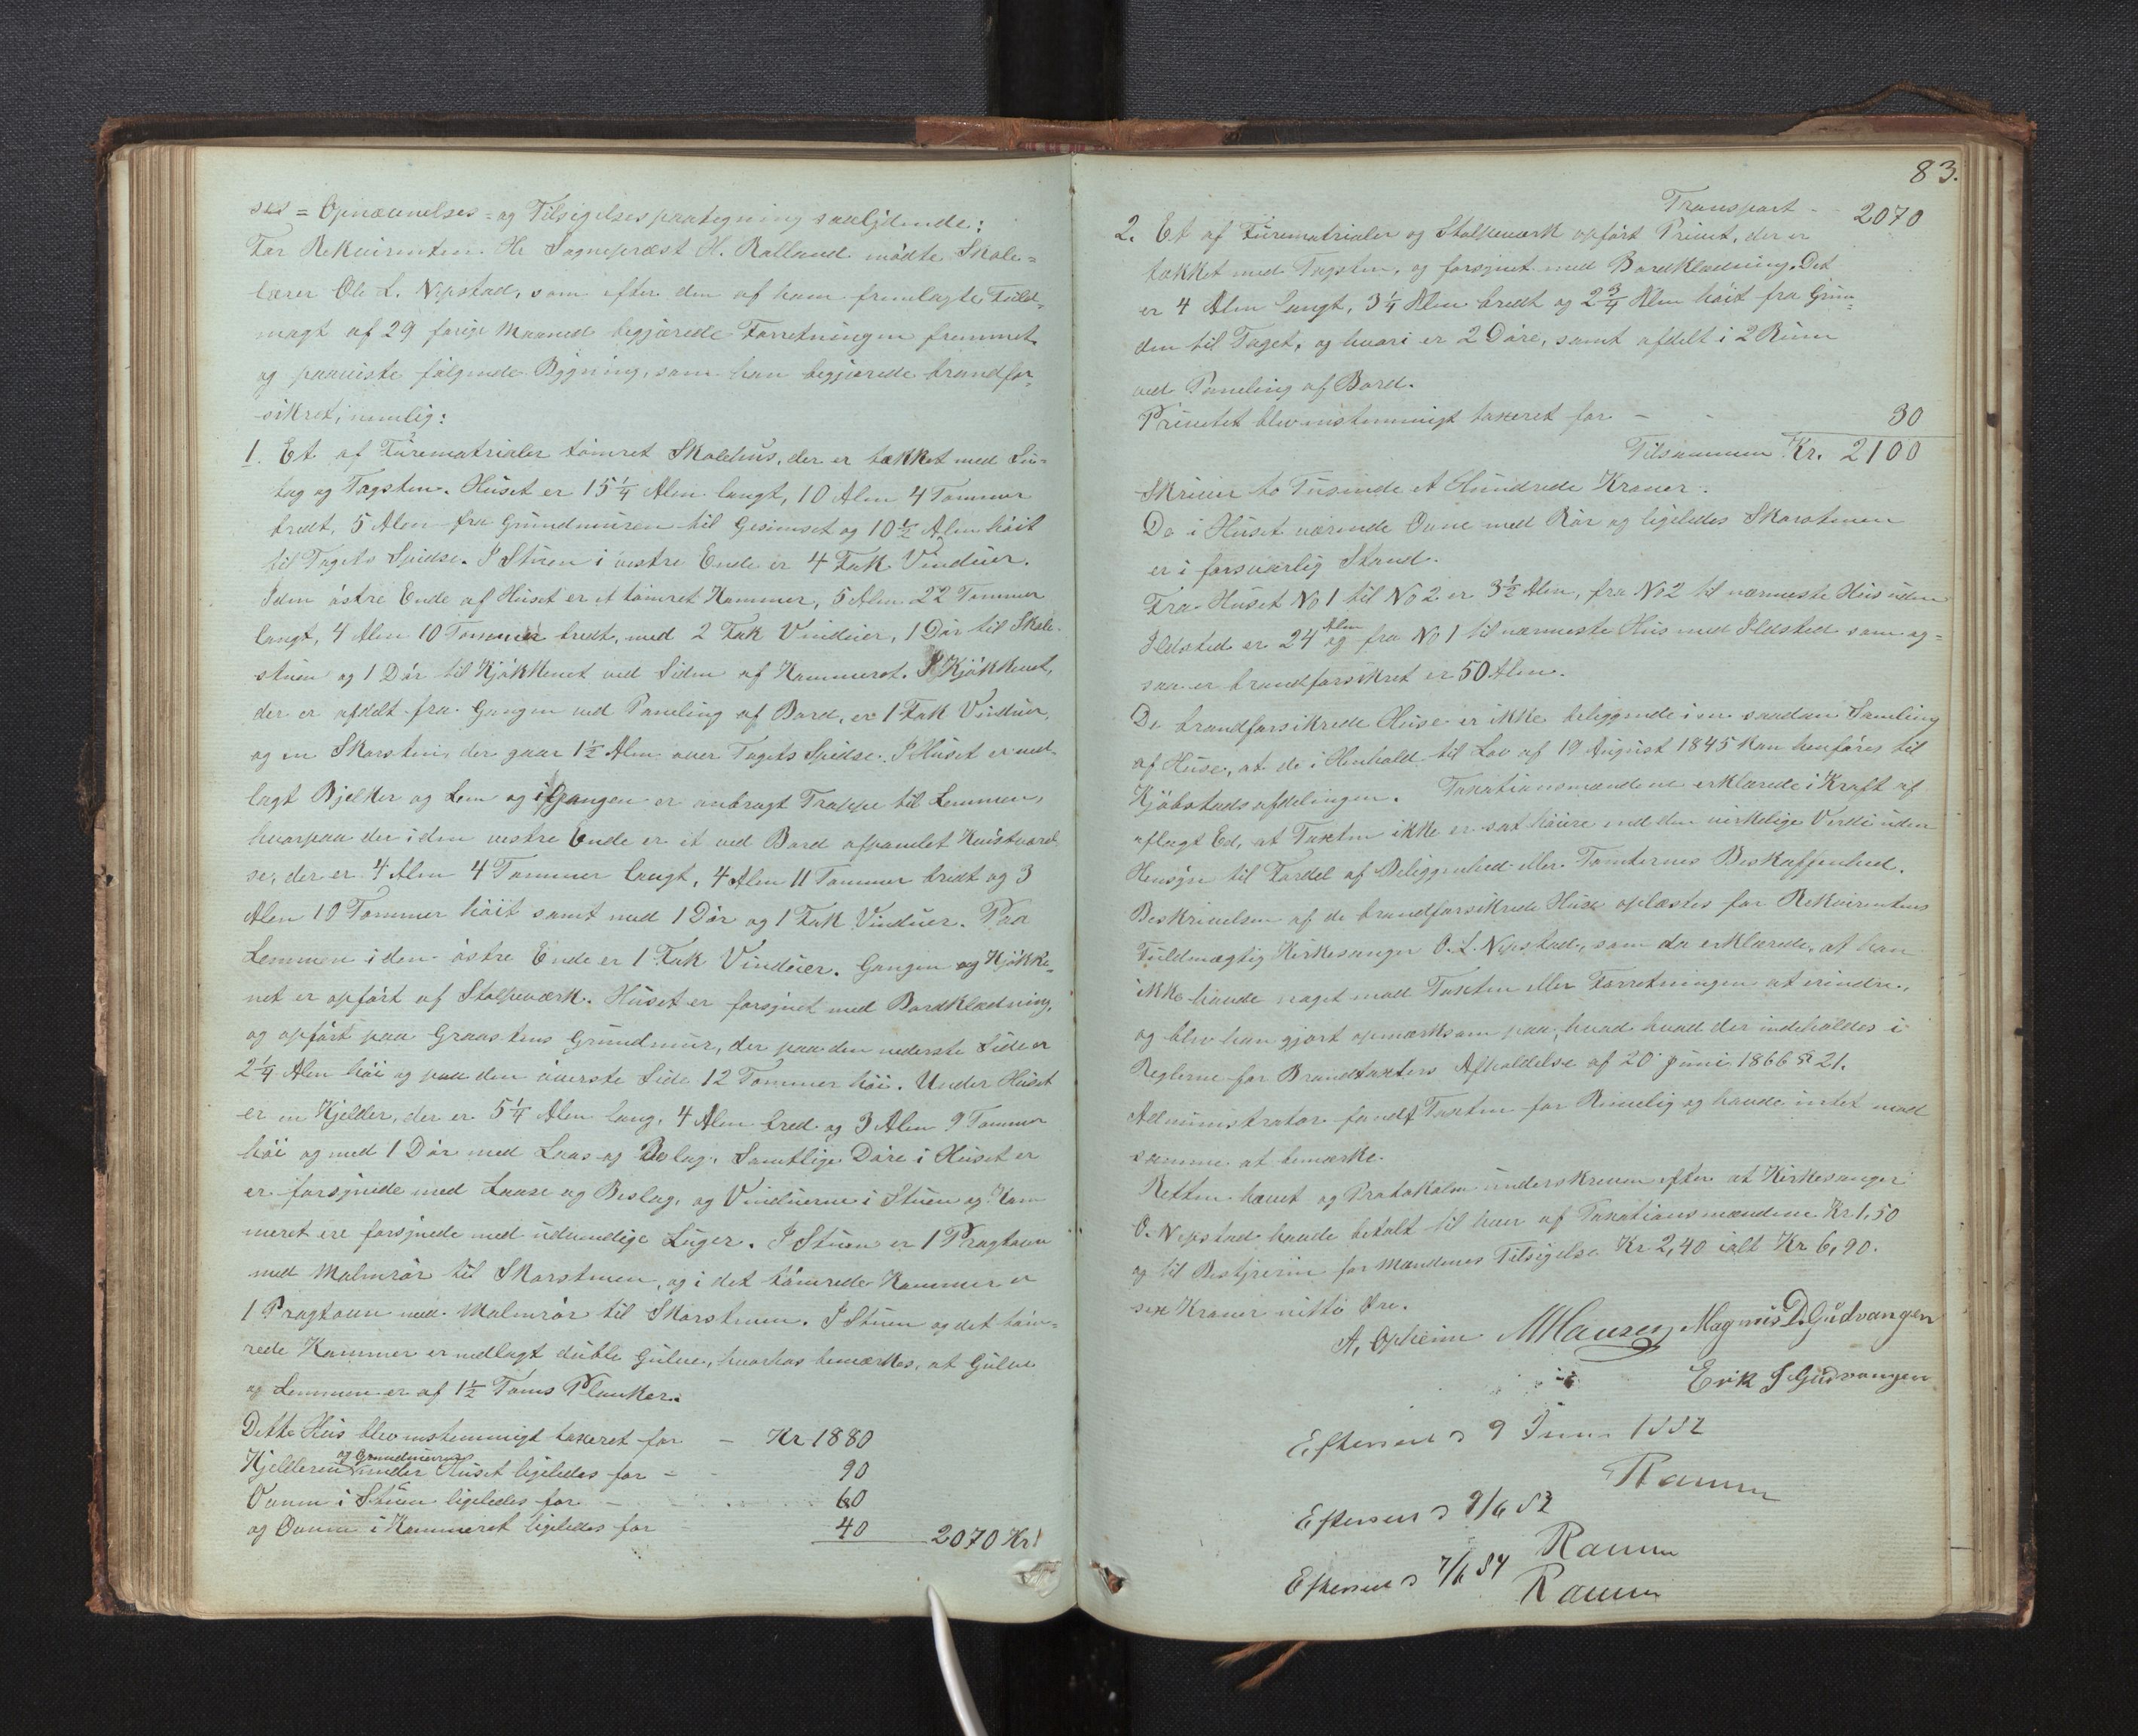 ses = Opnævnelses = og Tilsigelsespaategning saalydende:
For Rekvirenten Hr Sognepræst H. Kolland mødte Skole=
lærer Ole L. Nepstad, som efter den af ham fremlagte Fuld=
magt af 29 forige Maaned begjærede Forretningen fremmet
og paaviste følgende Bygning, som han begjærede brandfor=
sikret, nemlig:
1. Et af Furematrialer tømret Skolehus, der er tækket med Su=
tag og Tagsten. Huset er 15 1/4 Alen langt, 10 Alen 4 Tommer
bredt, 5 Alen fra Grundmuren til Gesimset og 10 1/2 Alen høit
til Tagets Spidse. I Stuen i vestre Ende er 4 Fak Vinduer.
I den østre Ende af Huset er et tømret Kammer, 5 Alen 22 Tommer
langt, 4 Alen 10 Tommer bredt, med 2 Fak Vinduer, 1 Dør til Skole=
stuen og 1 Dør til Kjøkkenet ved Siden af Kammeret. I Kjøkkenet,
der er afdelt fra Gangen ved Paneling af Bord, er 1 Fak Vinduer,
og en Skorsten, der gaar 1 1/2 Alen over Tagets Spidse. I Huset er ned=
lagt Bjelker og Lem og i Gangen er anbragt Trappe til Lemmen,
hvorpaa der i den vestre Ende er et ved Bord afpanelet Kvistværel
se, der er 4 Alen 4 Tommer langt, 4 Alen 11 Tommer bredt og 3
Alen 19 Tommer høit samt med 1 Dør og 1 Fak Vinduer. Paa
Lemmen i den østre Ende er 1 Fak Vinduer. Gangen og Kjøkke=
net er opført af Stolpeværk. Huset er forsynet med Bordklædning,
og opført paa Graastens Grundmur, der paa den nederste Side er
2 1/4 Alen høi og paa den øverste Side 12 Tommer høi. Under Huset
er en Kjelder, der er 5 1/4 Alen lang, 4 Alen bred og 3 Alen 9 Tommer
høi og med 1 Dør med Laas og Beslag. Samtlige Døre i Huset er
er forsynede med Laase og Beslag, og Vinduerne i Stuen og Kam
meret ere forsynede med udvendige Luger. I Stuen er 1 Pragtovn
med Malmrør til Skorstenen, og i det tømrede Kammer er
1 Pragtovn med Malmrør til Skorstenen. I Stuen og det tøm=
rede Kammer er nedlagt duble Gulve, hvorhos bemærkes, at Gulve
og Lemmen er af 1 1/2 Toms Planker.
Dette Hus blev enstemmigt taxeret for – Kr 1880
Kjelderen og Grundmuren under Huset ligeledes for – 90
Ovnen i Stuen ligeledes for – 60
og Ovnen i Kammeret ligeledes for 40 2070 Kr!
83.
Transport – 2070
2. Et af Furematrialer og Stolpeværk opført Privet, der er
tækket med Tagsten, og forsynet med Bordklædning. Det
er 4 Alen langt, 3 1/4 Alen bredt og 2 3/4 Alen høit fra Grun=
den til Taget, og hvori er 2 Døre, samt afdelt i 2 Rum
ved Paneling af Bord.
Privetet blev enstemmigt taxeret for – 30
Tilsammen Kr. 2100
Skriver to Tusinde et Hundrede Kroner.
De i Huset værende Ovne med Rør og ligeledes Skorstenen
er i forsvarlig Stand.
Fra Huset No 1 til No 2 er 3 1/2 Alen, fra No 2 til nærmeste Hus uden
Ildsted er 24 Alen og fra No 1 til nærmeste Hus med Ildsted som og=
saa er brandforsikret er 50 Alen.
De brandforsikrede Huse er ikke beliggende i en saadan Samling
af Huse, at de i Henhold til Lov af 19 August 1845 kan henføres til
Kjøbstadsafdelingen. Taxationsmændene erklærede i Kraft af
aflagt Ed, at Taxten ikke er sat høiere end den virkelige Værdi uden
Hensyn til Fordel af Beliggenhed eller Tomternes Beskaffenhed.
Beskrivelsen af de brandforsikrede Huse oplæstes for Rekvirentens
Fuldmægtig Kirkesanger O. L. Nepstad, som da erklærede, at han
ikke havde noget mod Taxten eller Forretningen at erindre,
og blev han gjort opmærksom paa, hvad hvad der indeholdes i
Reglerne for Brandtaxters Afholdelse af 20 Juni 1866 § 21.
Administrator fandt Taxten for Rimelig og havde intet mod
samme at bemærke.
Retten hævet og Protokolen underskreven efter at Kirkesanger
O. Nepstad havde betalt til hver af Taxationsmændene Kr 1,50
og til Bestyreren for Mændenes Tilsigelse Kr 2,40 ialt Kr 6,90.
sex Kroner nitti Øre.
A. Opheim MHansen Magnus D. Gudvangen
Erik S Gudvangen
Efterseet d 9 Juni 1882
Ramm
Efterseet d 9/6 83
Ramm
Efterseet d 7/6 84
Ramm